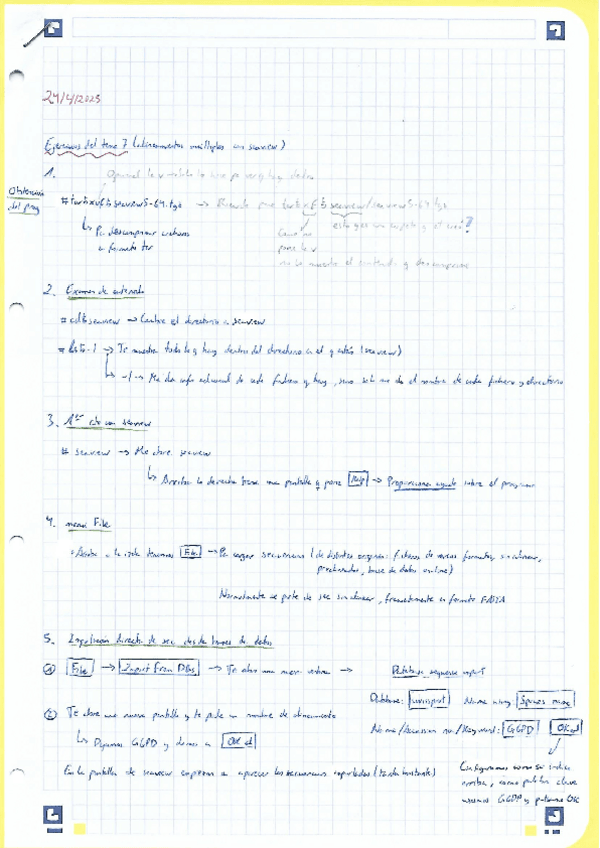 24/4/2025
Ejercicios del tema 7 (alineamientos múltiples con seaview)
1.
Obtención
del prog
# tar bxvfb seaview5-64.tgz
↳ Pa descomprimir archivos
en formato tar
esto que un carpeta y el
pone la v
no lo muestra el contenido y descomprime
2. Examen de contenido
# cd b seaview → Cambia el directorio a seaview
# ls b -l → Te muestra todo lo q hay dentro del directorio en el q estás (seaview)
↳ -l → Me da info adicional de cada fichero q hay, sino solo me da el nombre de cada fichero y directorio
3. 1er con seaview
# seaview → Me abre seaview
↳ Arriba a la derecha tiene una pantalla q pone Help → Proporciona ayuda sobre el programa
4. menú File
· Arriba a la izda tenemos File → Pa cargar secuencias (de distintos orígenes: ficheros de varios formatos, sin alinear,
prealineados, base de datos online)
Normalmente se parte de sec sin alinear, frecuentemente en formato FASTA
5. Importación directa de sec desde bases de datos
① File → Import from DBs → Te abre una nueva ventana → Database sequence import
Database: swissprot Name using Species name
② Te abre una nueva pantalla y te pide un nombre de alineamiento
Name/Accession no./Keyword: G6PD OK
↳ Ponemos G6PD y damos a OK
En la pantalla de seaview empiezan a aparecer las secuencias importadas (tarda bastante)
Configuramos como se indica
arriba, como palabra clave
usamos G6PD y pulsamos OK